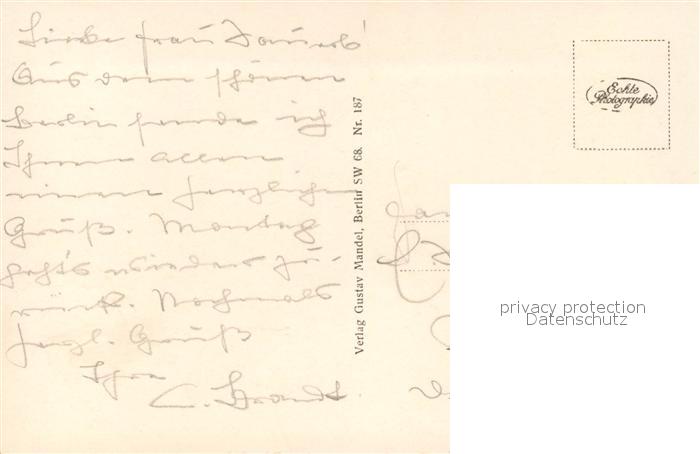 Liebe Frau
Aus dem schönen
Berlin sende ich
Ihnen allen
einen herzlichen
Gruß. Montag
geht's wieder zu-
rück. Nochmals
herzl. Gruß
Ihre
C. Brandt.
Verlag Gustav Mandel, Berlin SW 68. Nr. 187
Echte
Photographie
privacy protection
Datenschutz